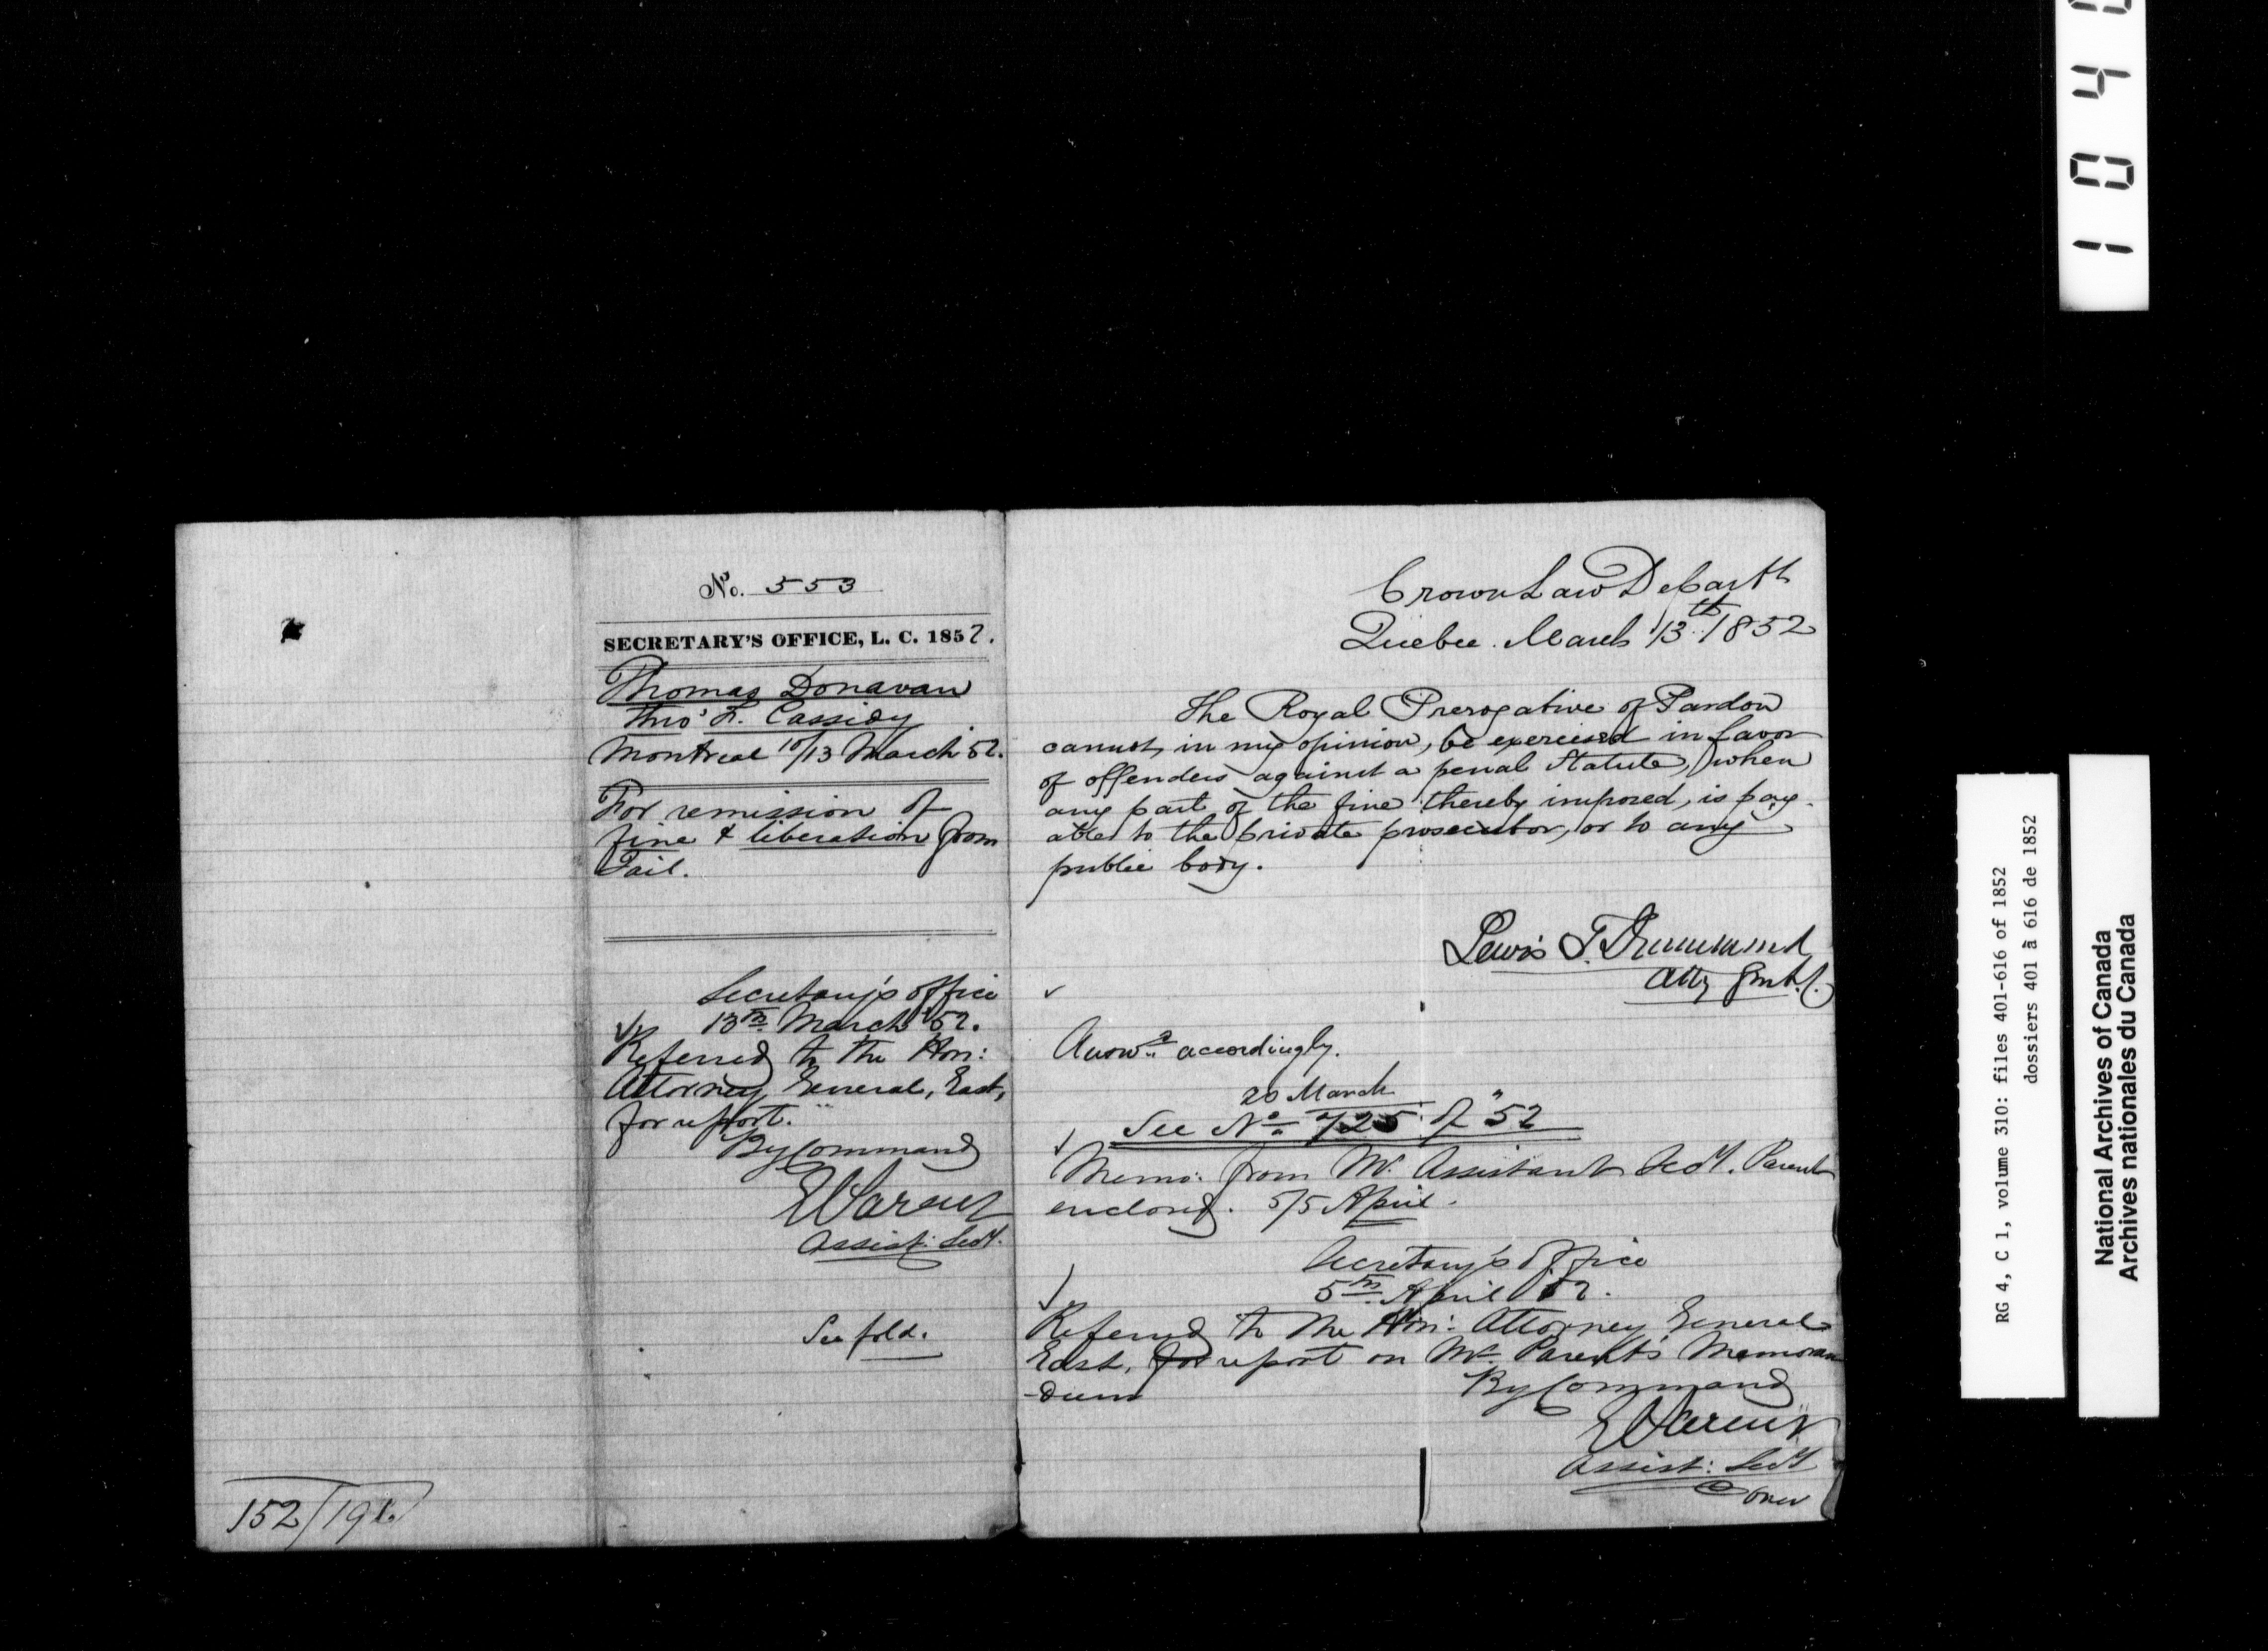 No. 553
SECRETARY'S OFFICE, L. C. 1852.
Thomas Donavan
Thos L. Cassidy
Montreal 10/13 March 52.
For remission of
fine & liberation from
Jail.
Secretary's office
13th March 52.
Referred to the Hon:
Attorney General, East,
for report.
By Command
Assist: Secy.
See fold.
152/191.
Crown Law Departt
Quebec. March 13th 1852
The Royal Prerogative of Pardon
cannot, in my opinion, be exercised in favor
of offenders against a penal Statute, when
any part of the fine thereby imposed, is pay-
able to the private prosecutor, or to any
public body.
Lewis T. Drummond
Atty Genl.
Answd accordingly.
20 March
See No. 725 of "52
Memo: from Mr. Assistant Secy. Parent
enclosed. 5/5 April.
Secretary's office
5th April 52.
Referred to the Hon: Attorney General
East, for report on Mr. Parent's Memoran
-dum
By Command
Assist: Secy
over
1 0 4
RG 4, C 1, volume 310: files 401-616 of 1852
dossiers 401 à 616 de 1852
National Archives of Canada
Archives nationales du Canada